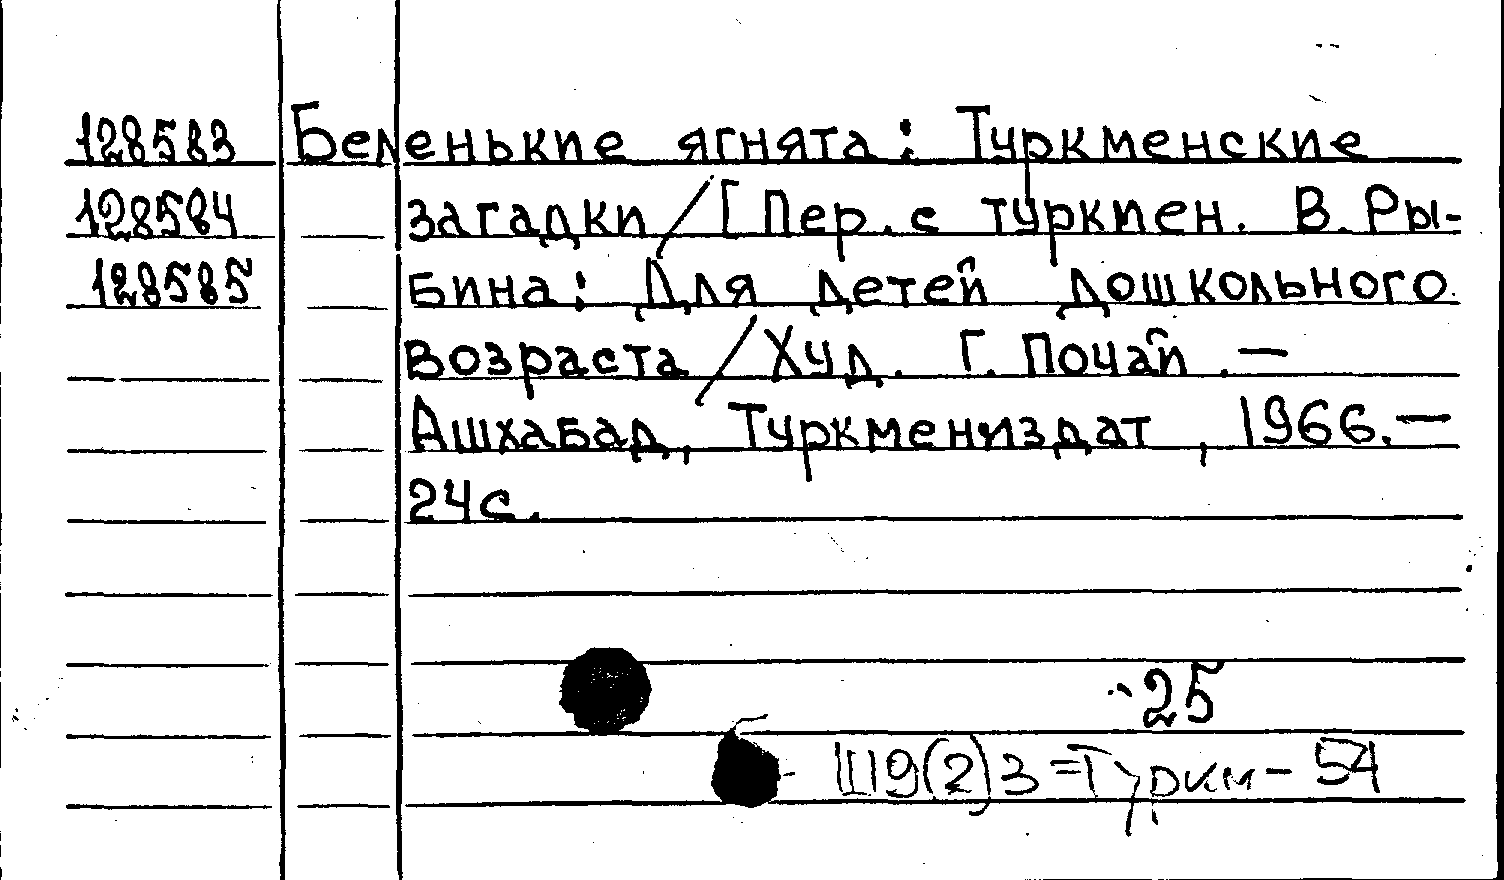 128583 Беленькие ягнята: Туркменские
128584 загадки / [Пер. с туркмен. В. Ры-
128585 бина: Для детей дошкольного
возраста / Худ. Г. Почай. —
Ашхабад, Туркмениздат, 1966. —
24 с.
25
Ш9(2)3=Туркм-54